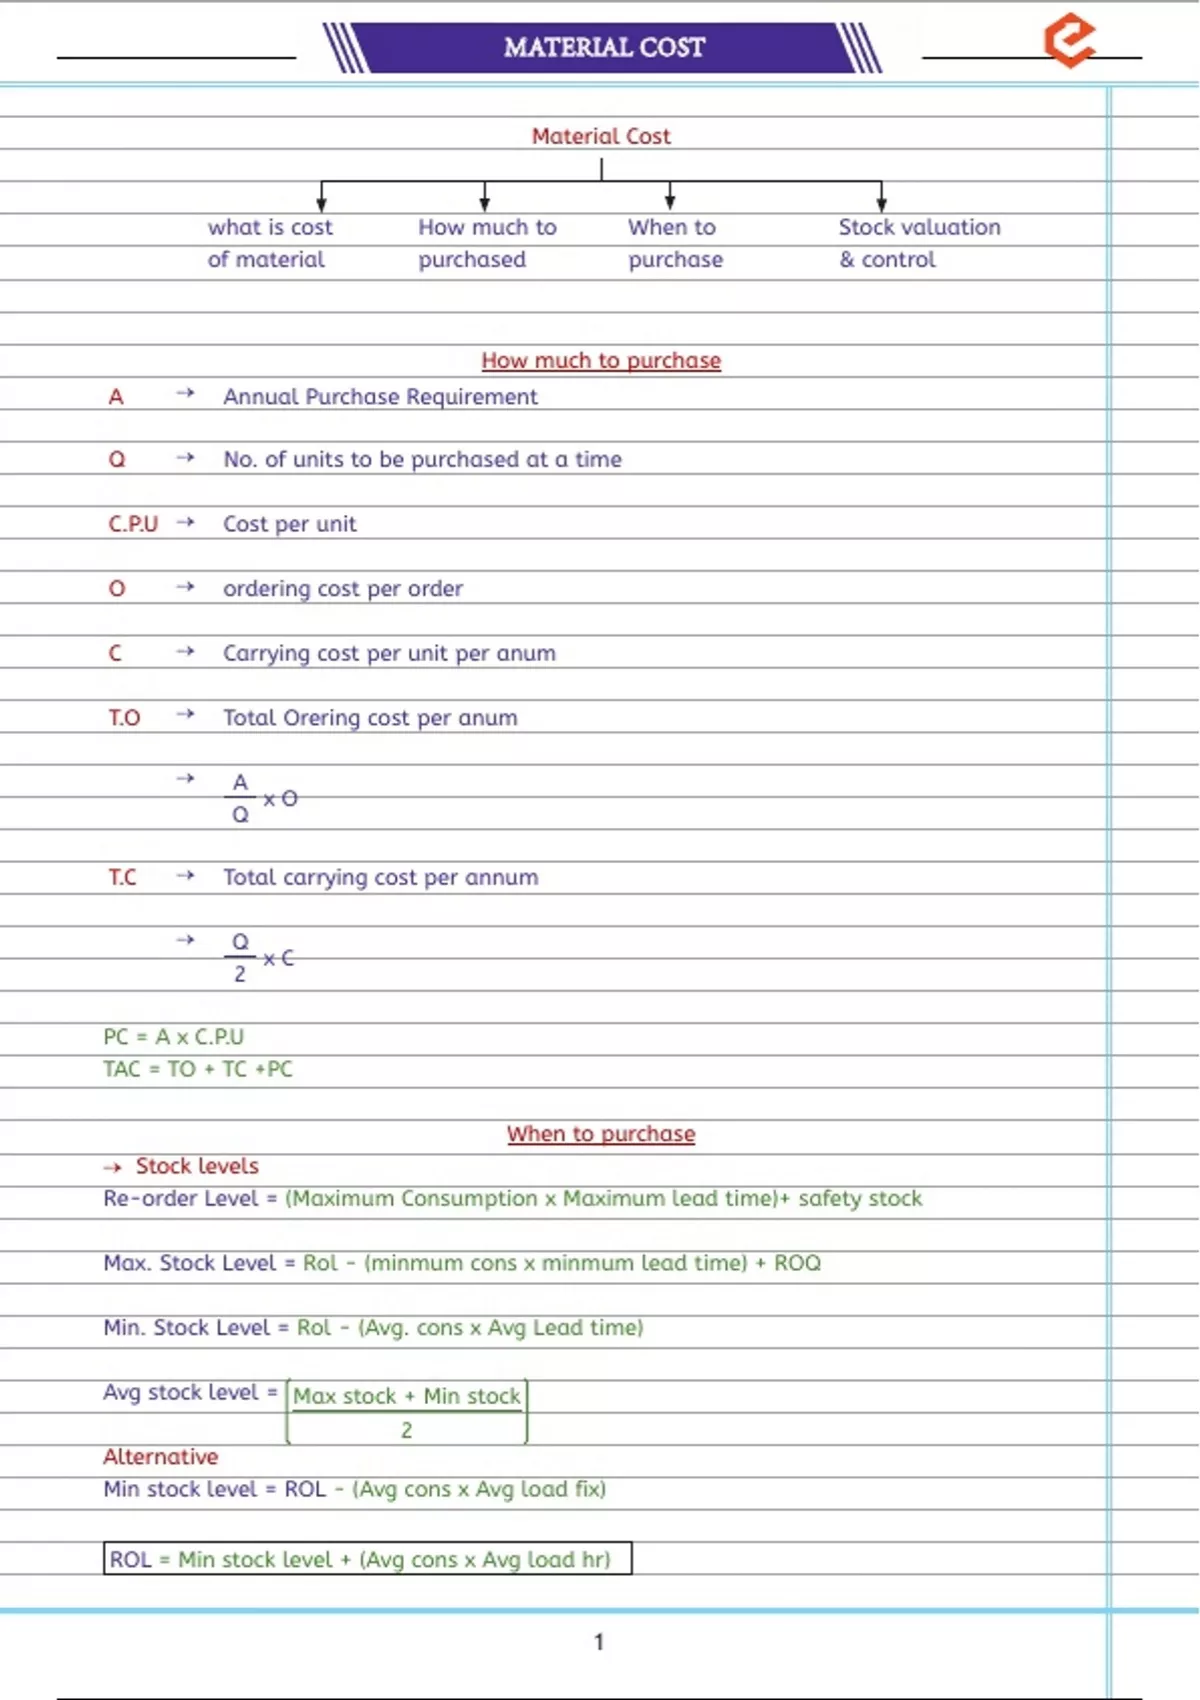 MATERIAL COST
Material Cost
what is cost of material
How much to purchased
When to purchase
Stock valuation & control
How much to purchase
A → Annual Purchase Requirement
Q → No. of units to be purchased at a time
C.P.U → Cost per unit
O → ordering cost per order
C → Carrying cost per unit per anum
T.O → Total Orering cost per anum
→ A/Q x O
T.C → Total carrying cost per annum
→ Q/2 x C
PC = A x C.P.U
TAC = TO + TC +PC
When to purchase
→ Stock levels
Re-order Level = (Maximum Consumption x Maximum lead time)+ safety stock
Max. Stock Level = Rol - (minmum cons x minmum lead time) + ROQ
Min. Stock Level = Rol - (Avg. cons x Avg Lead time)
Avg stock level = [Max stock + Min stock / 2]
Alternative
Min stock level = ROL - (Avg cons x Avg load fix)
ROL = Min stock level + (Avg cons x Avg load hr)
1